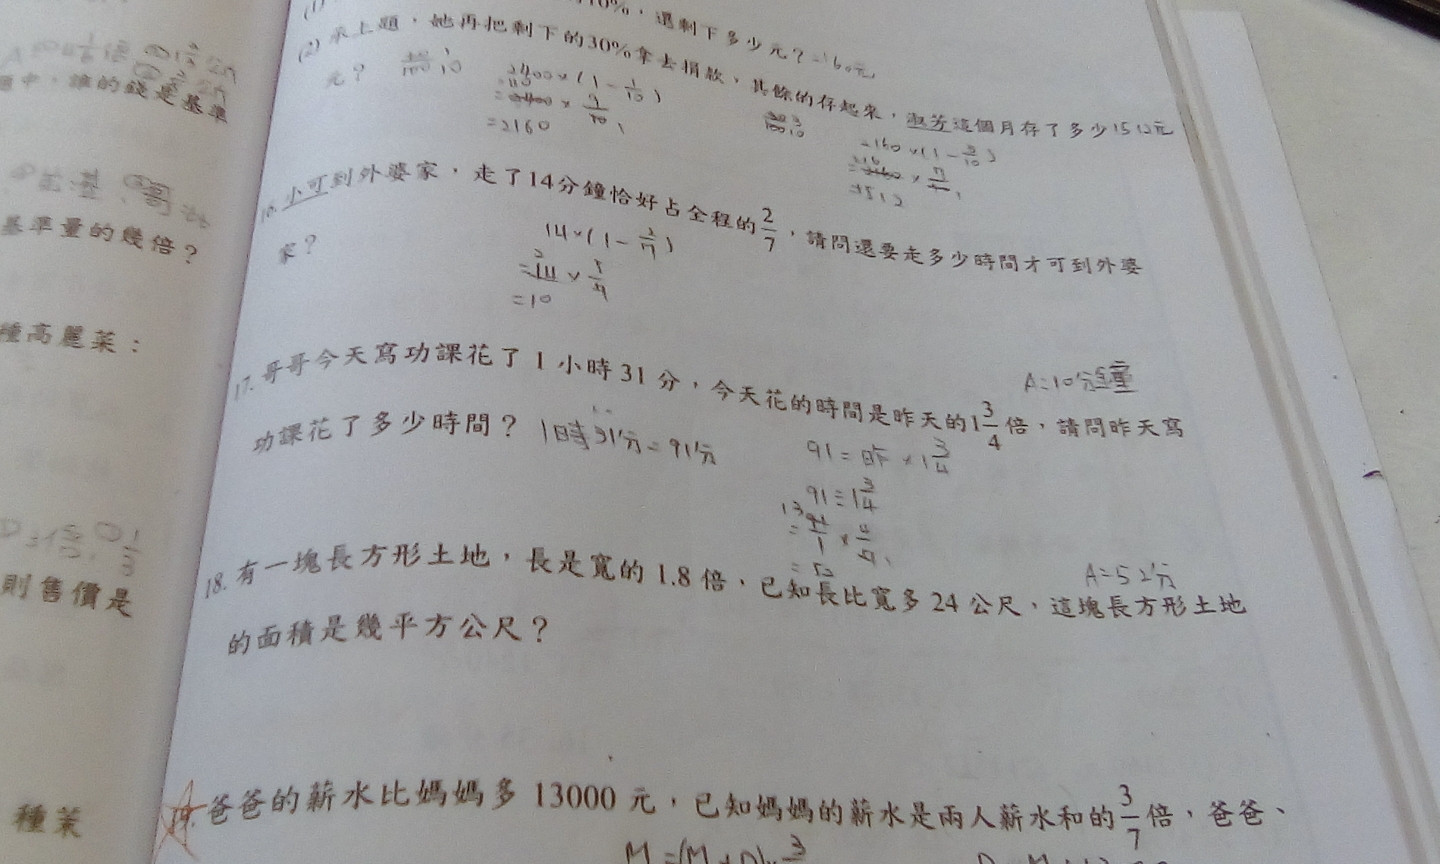 10%，還剩下多少元？2160元
(2) 承上題，她再把剩下的30%拿去捐款，其餘的存起來，淑芳這個月存了多少1512元
元？
2400×(1-1/10)
=2400×9/10
=2160
2160×(1-3/10)
=2160×7/10
=1512
16. 小可到外婆家，走了14分鐘恰好占全程的2/7，請問還要走多少時間才可到外婆
家？
14×(1-2/7)
=14×5/7
=10
A=10分鐘
17. 哥哥今天寫功課花了 1 小時 31 分，今天花的時間是昨天的1 3/4倍，請問昨天寫
功課花了多少時間？ 1時31分=91分
91=昨×1 3/4
91÷1 3/4
=91/1×4/7
=52
A=52分
18. 有一塊長方形土地，長是寬的 1.8 倍，已知長比寬多 24 公尺，這塊長方形土地
的面積是幾平方公尺？
19. 爸爸的薪水比媽媽多 13000 元，已知媽媽的薪水是兩人薪水和的3/7倍，爸爸、
誰的錢是基準
基準量的幾倍？
種高麗菜：
則售價是